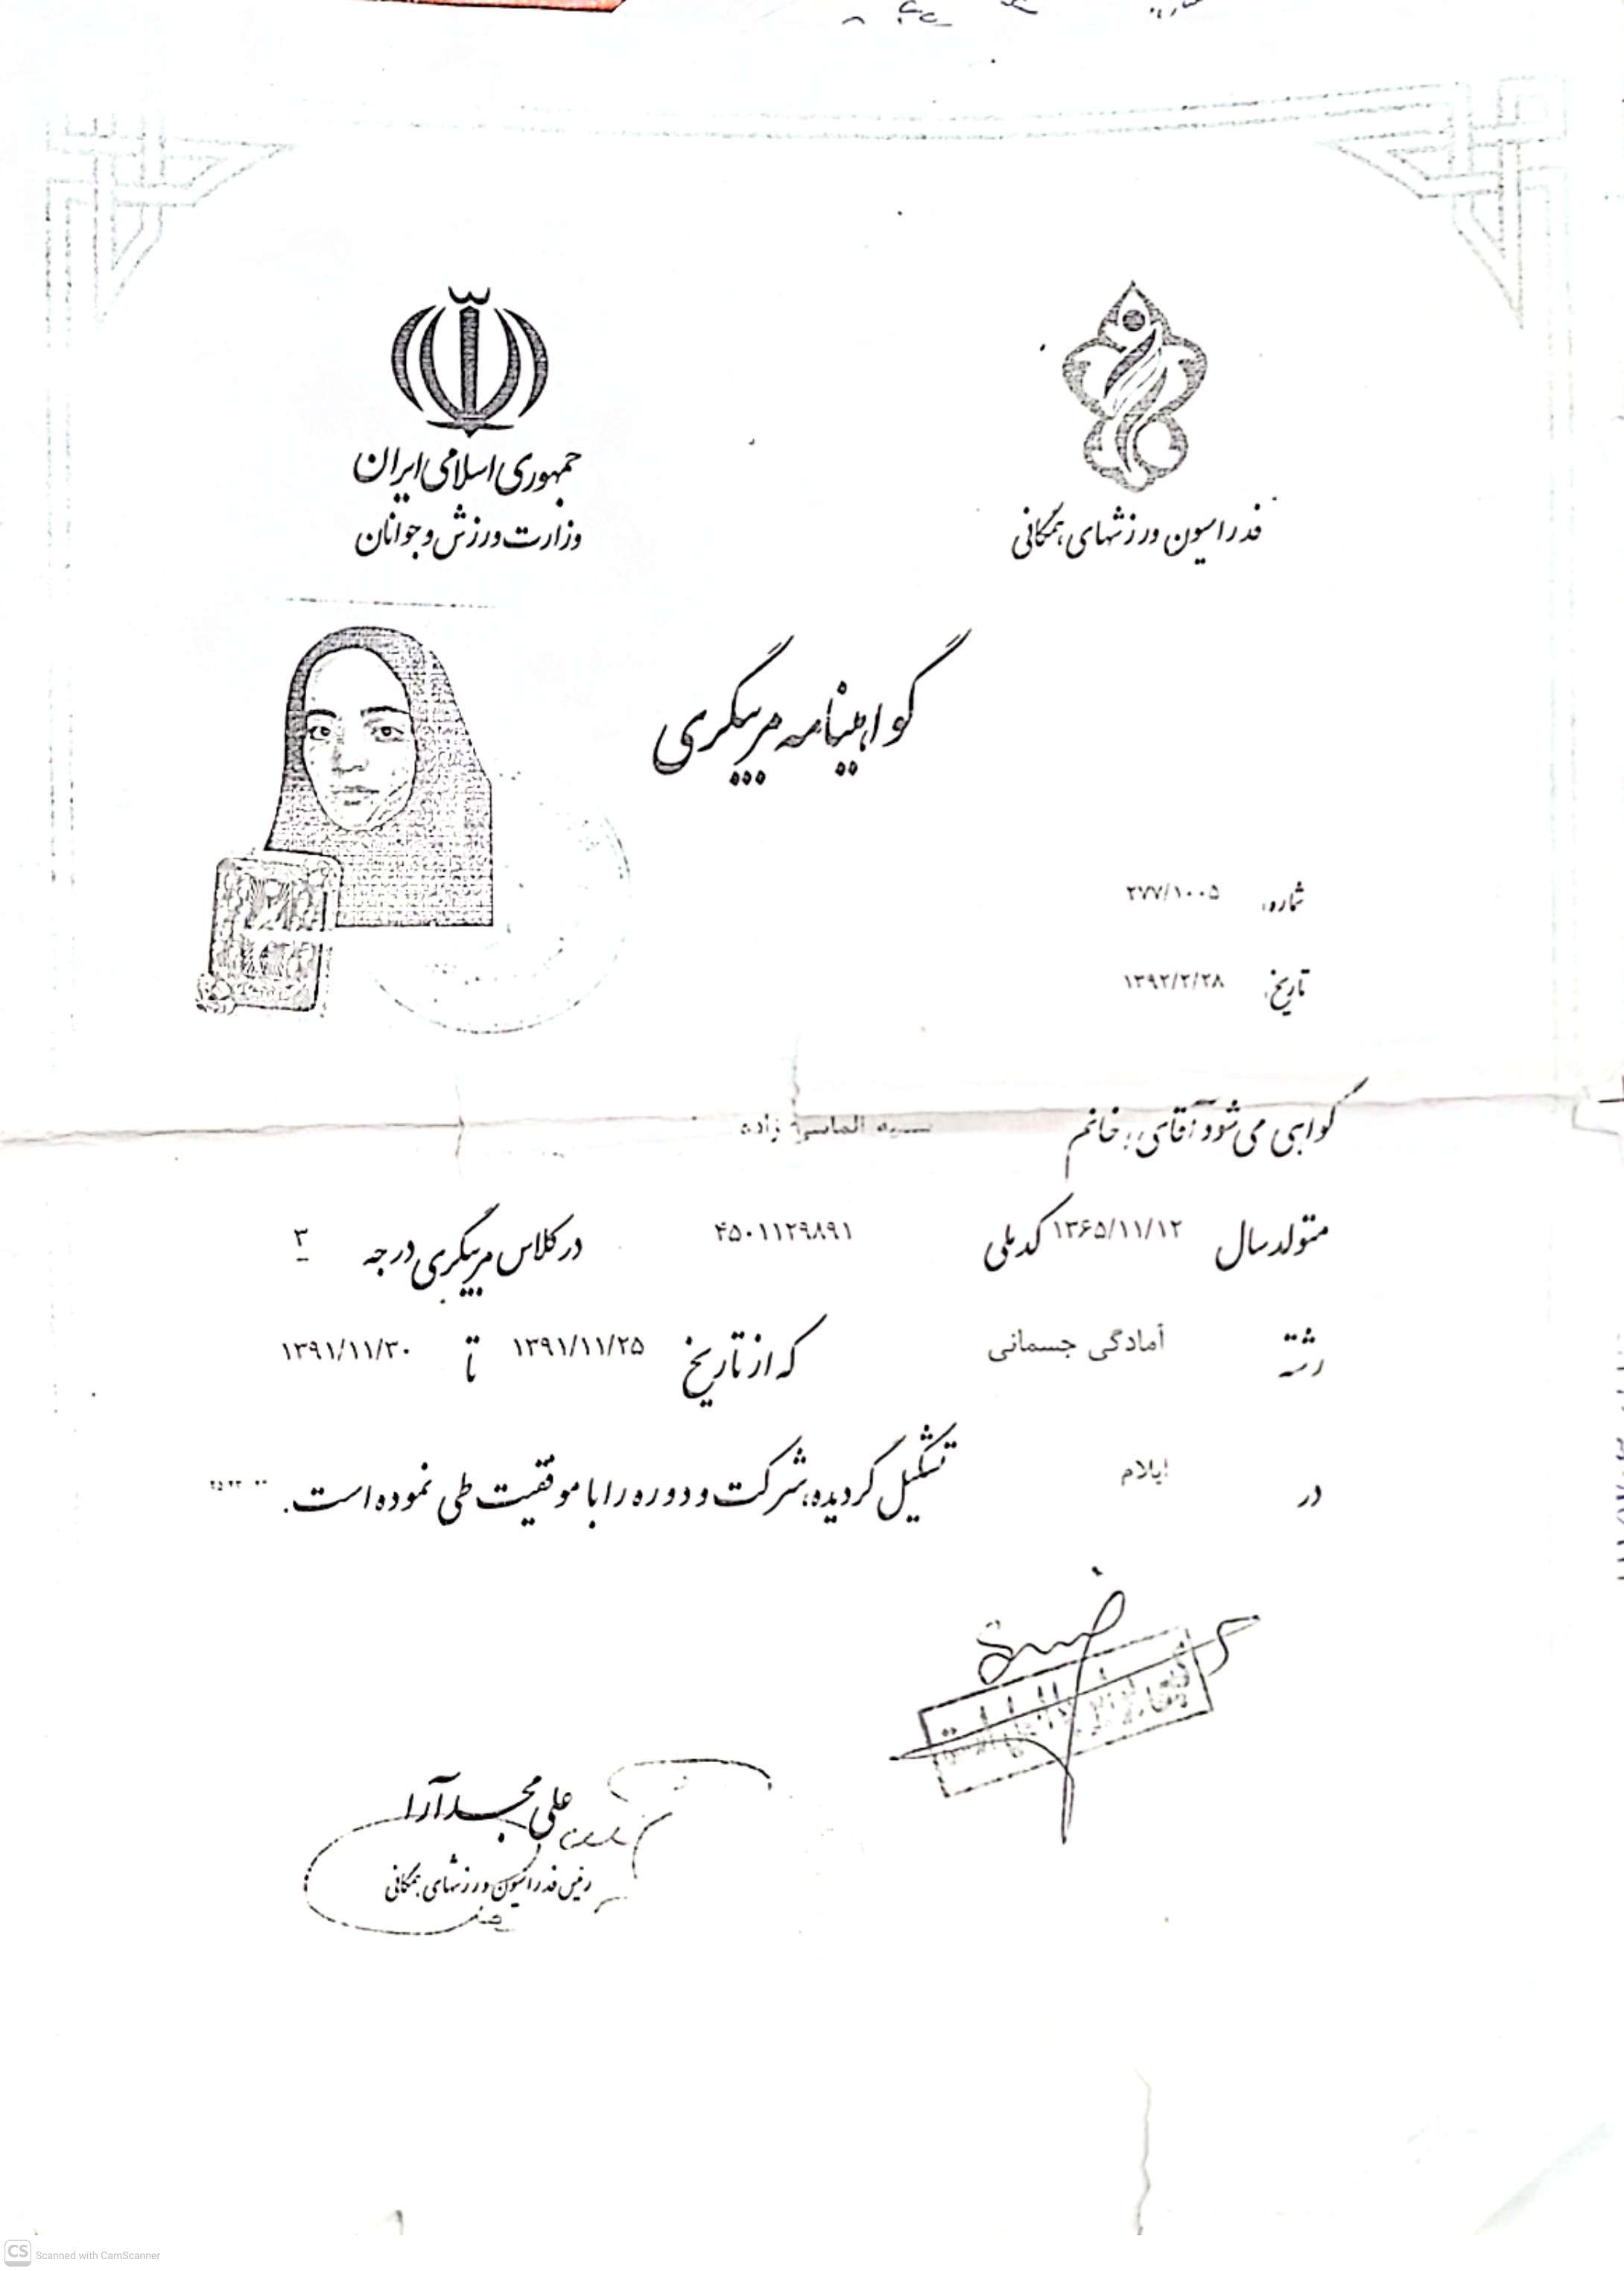 جمهوری اسلامی ایران
وزارت ورزش و جوانان
فدراسیون ورزشهای همگانی
گواهینامه مربیگری
شماره: ۲۷۷/۱۰۰۵
تاریخ: ۱۳۹۲/۲/۲۸
گواهی می شود آقای / خانم الماسی زاده
متولد سال ۱۳۶۵/۱۱/۱۲ کد ملی ۴۵۰۱۱۲۹۸۹۱ در کلاس مربیگری درجه ۳
رشته آمادگی جسمانی که از تاریخ ۱۳۹۱/۱۱/۲۵ تا ۱۳۹۱/۱۱/۳۰
در ایلام تشکیل گردیده، شرکت و دوره را با موفقیت طی نموده است.
علی مجدآرا
رئیس فدراسیون ورزشهای همگانی
CS Scanned with CamScanner